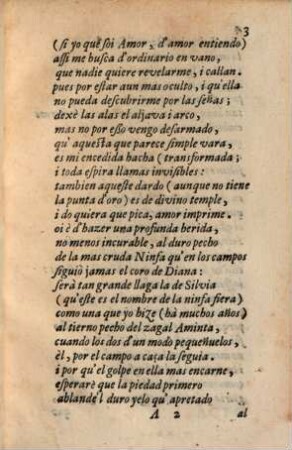 3
(si yo què soi Amor, d'amor entiendo)
assi me busca d'ordinario en vano,
que nadie quiere revelarme, i callan.
pues por estar aun mas oculto, i qu'ella
no pueda descubrirme por las señas;
dexè las alas el aljava i arco,
mas no por esso vengo desarmado,
qu'aquesta que parece simple vara,
es mi encedida hacha (transformada;
i toda espira llamas invisibles:
tambien aqueste dardo (aunque no tiene
la punta d'oro) es de divino temple,
i do quiera que pica, amor imprime.
oi è d'hazer una profunda herida,
no menos incurable, al duro pecho
de la mas cruda Ninfa qu'en los campos
siguio jamas el coro de Diana:
serà tan grande llaga la de Silvia
(qu'este es el nombre de la ninfa fiera)
como una que yo hize (hà muchos años)
al tierno pecho del zagal Aminta,
cuando los dos d'un modo pequeñuelos,
èl, por el campo a caza la seguia.
i por qu'el golpe en ella mas encarne,
esperarè que la piedad primero
ablande'l duro yelo qu'apretado
A 2 al